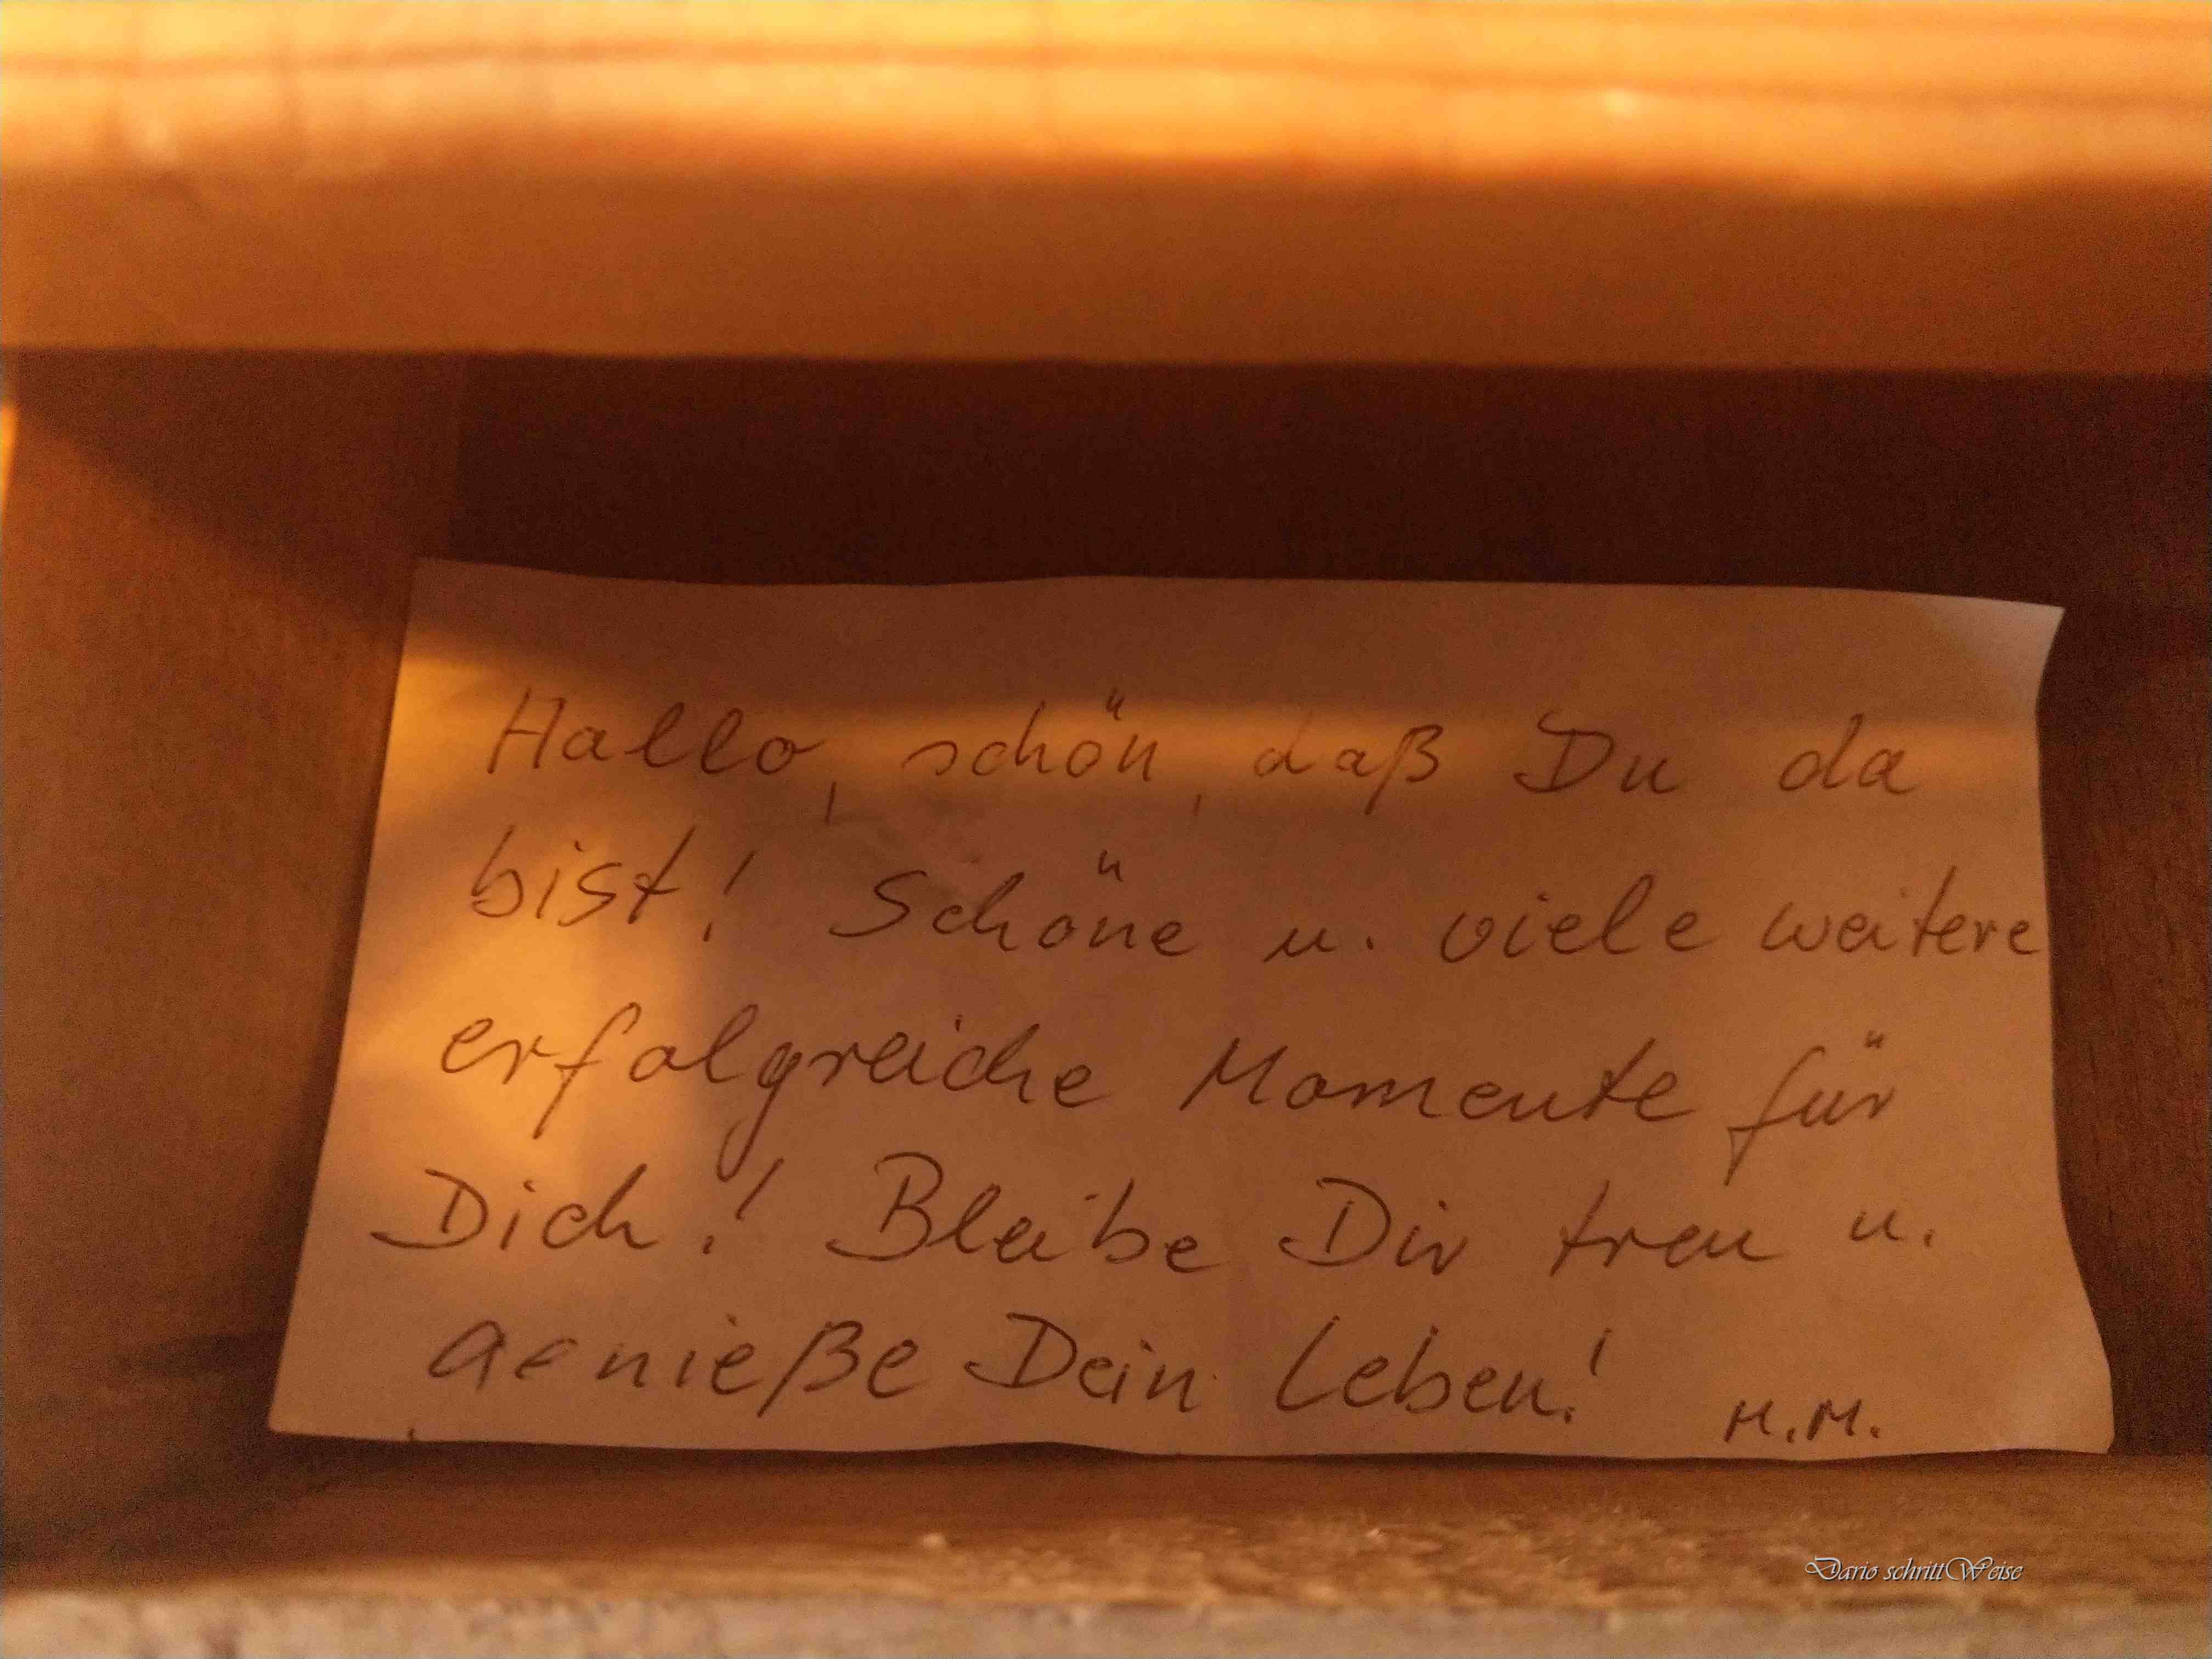 Hallo, schön, daß Du da
bist! Schöne u. viele weitere
erfolgreiche Momente für
Dich! Bleibe Dir treu u.
Genieße Dein Leben! M.M.
Dario schrittWeise